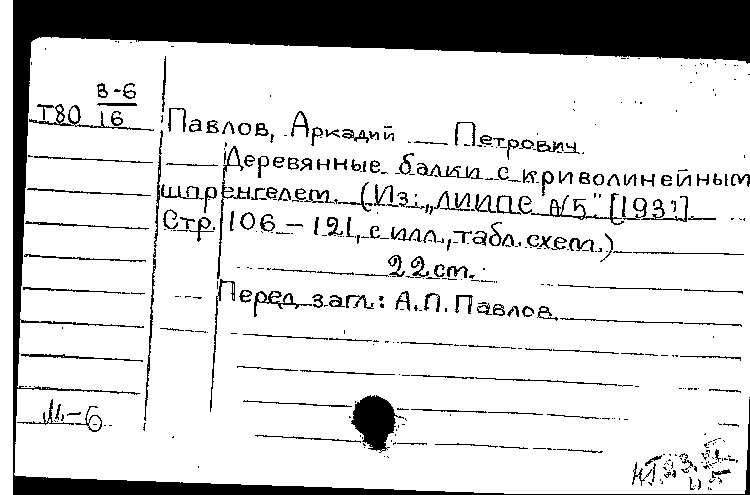 В-6
Т80 16
Павлов, Аркадий Петрович.
Деревянные балки с криволинейным
шпренгелем. (Из: „ЛИИПС №5" [193?].
Стр. 106 – 121, с илл., табл. схем.)
22 см.
Перед загл.: А.П. Павлов.
М-6